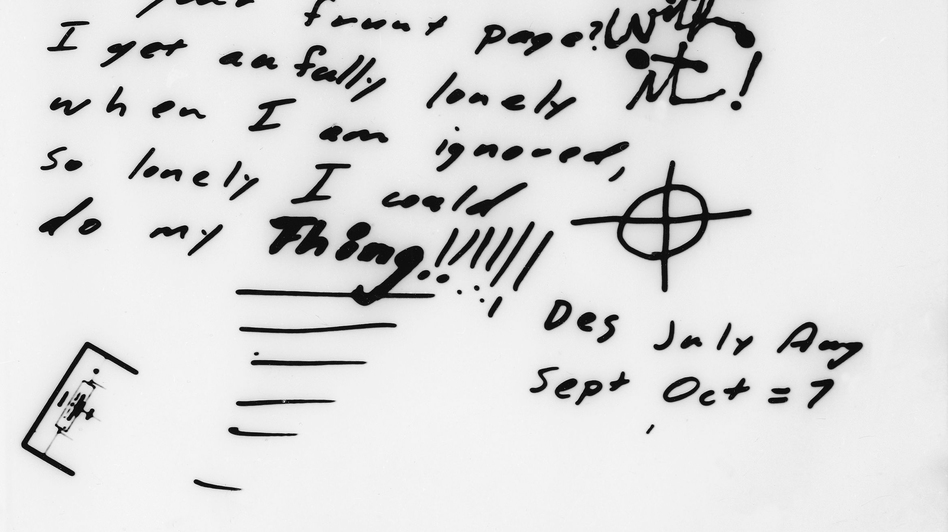 your frunt page? With
I get aufully lonely it!
when I am ignored,
so lonely I could
do my Thing!!!!!!
Des July Aug
Sept Oct = 7